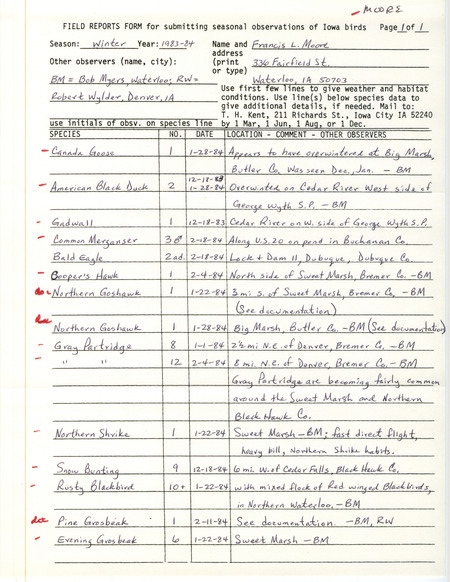 - MOORE
FIELD REPORTS FORM for submitting seasonal observations of Iowa birds Page 1 of 1
Season: Winter Year: 1983-84 Name and Francis L. Moore
address
Other observers (name, city): (print 336 Fairfield St.
or type)
BM = Bob Myers, Waterloo; RW = Waterloo, IA 50703
Robert Wylder, Denver, IA
Use first few lines to give weather and habitat
conditions. Use line(s) below species data to
give additional details, if needed. Mail to:
T. H. Kent, 211 Richards St., Iowa City IA 52240
use initials of obsv. on species line by 1 Mar, 1 Jun, 1 Aug, or 1 Dec.
SPECIES NO. DATE LOCATION - COMMENT - OTHER OBSERVERS
- Canada Goose 1 1-28-84 Appears to have overwintered at Big Marsh,
Butler Co. Was seen Dec., Jan. - BM
12-18-83
- American Black Duck 2 1-28-84 Overwinted on Cedar River West side of
George Wyth S.P. - BM
- Gadwall 1 12-18-83 Cedar River on W. side of George Wyth S.P.
- Common Merganser 3♂ 2-18-84 Along U.S. 20 on pond in Buchanan Co.
Bald Eagle 2ad. 2-18-84 Lock & Dam 11, Dubuque, Dubuque Co.
- Cooper's Hawk 1 2-4-84 North side of Sweet Marsh, Bremer Co. - BM
doc Northern Goshawk 1 1-22-84 3 mi s. of Sweet Marsh, Bremer Co. - BM
(See documentation)
doc Northern Goshawk 1 1-28-84 Big Marsh, Butler Co. - BM (See documentation)
- Gray Partridge 8 1-1-84 2½ mi N.E. of Denver, Bremer Co. - BM
- " " 12 2-4-84 8 mi. N.E. of Denver, Bremer Co. - BM
Gray Partridge are becoming fairly common
around the Sweet Marsh and Northern
Black Hawk Co.
- Northern Shrike 1 1-22-84 Sweet Marsh - BM; fast direct flight,
heavy bill, Northern Shrike habits.
- Snow Bunting 9 12-18-84 6 mi. W. of Cedar Falls, Black Hawk Co.
- Rusty Blackbird 10+ 1-22-84 with mixed flock of Red winged Blackbirds,
in Northern Waterloo. - BM
doc Pine Grosbeak 1 2-11-84 See documentation. - BM, RW
- Evening Grosbeak 6 1-22-84 Sweet Marsh - BM